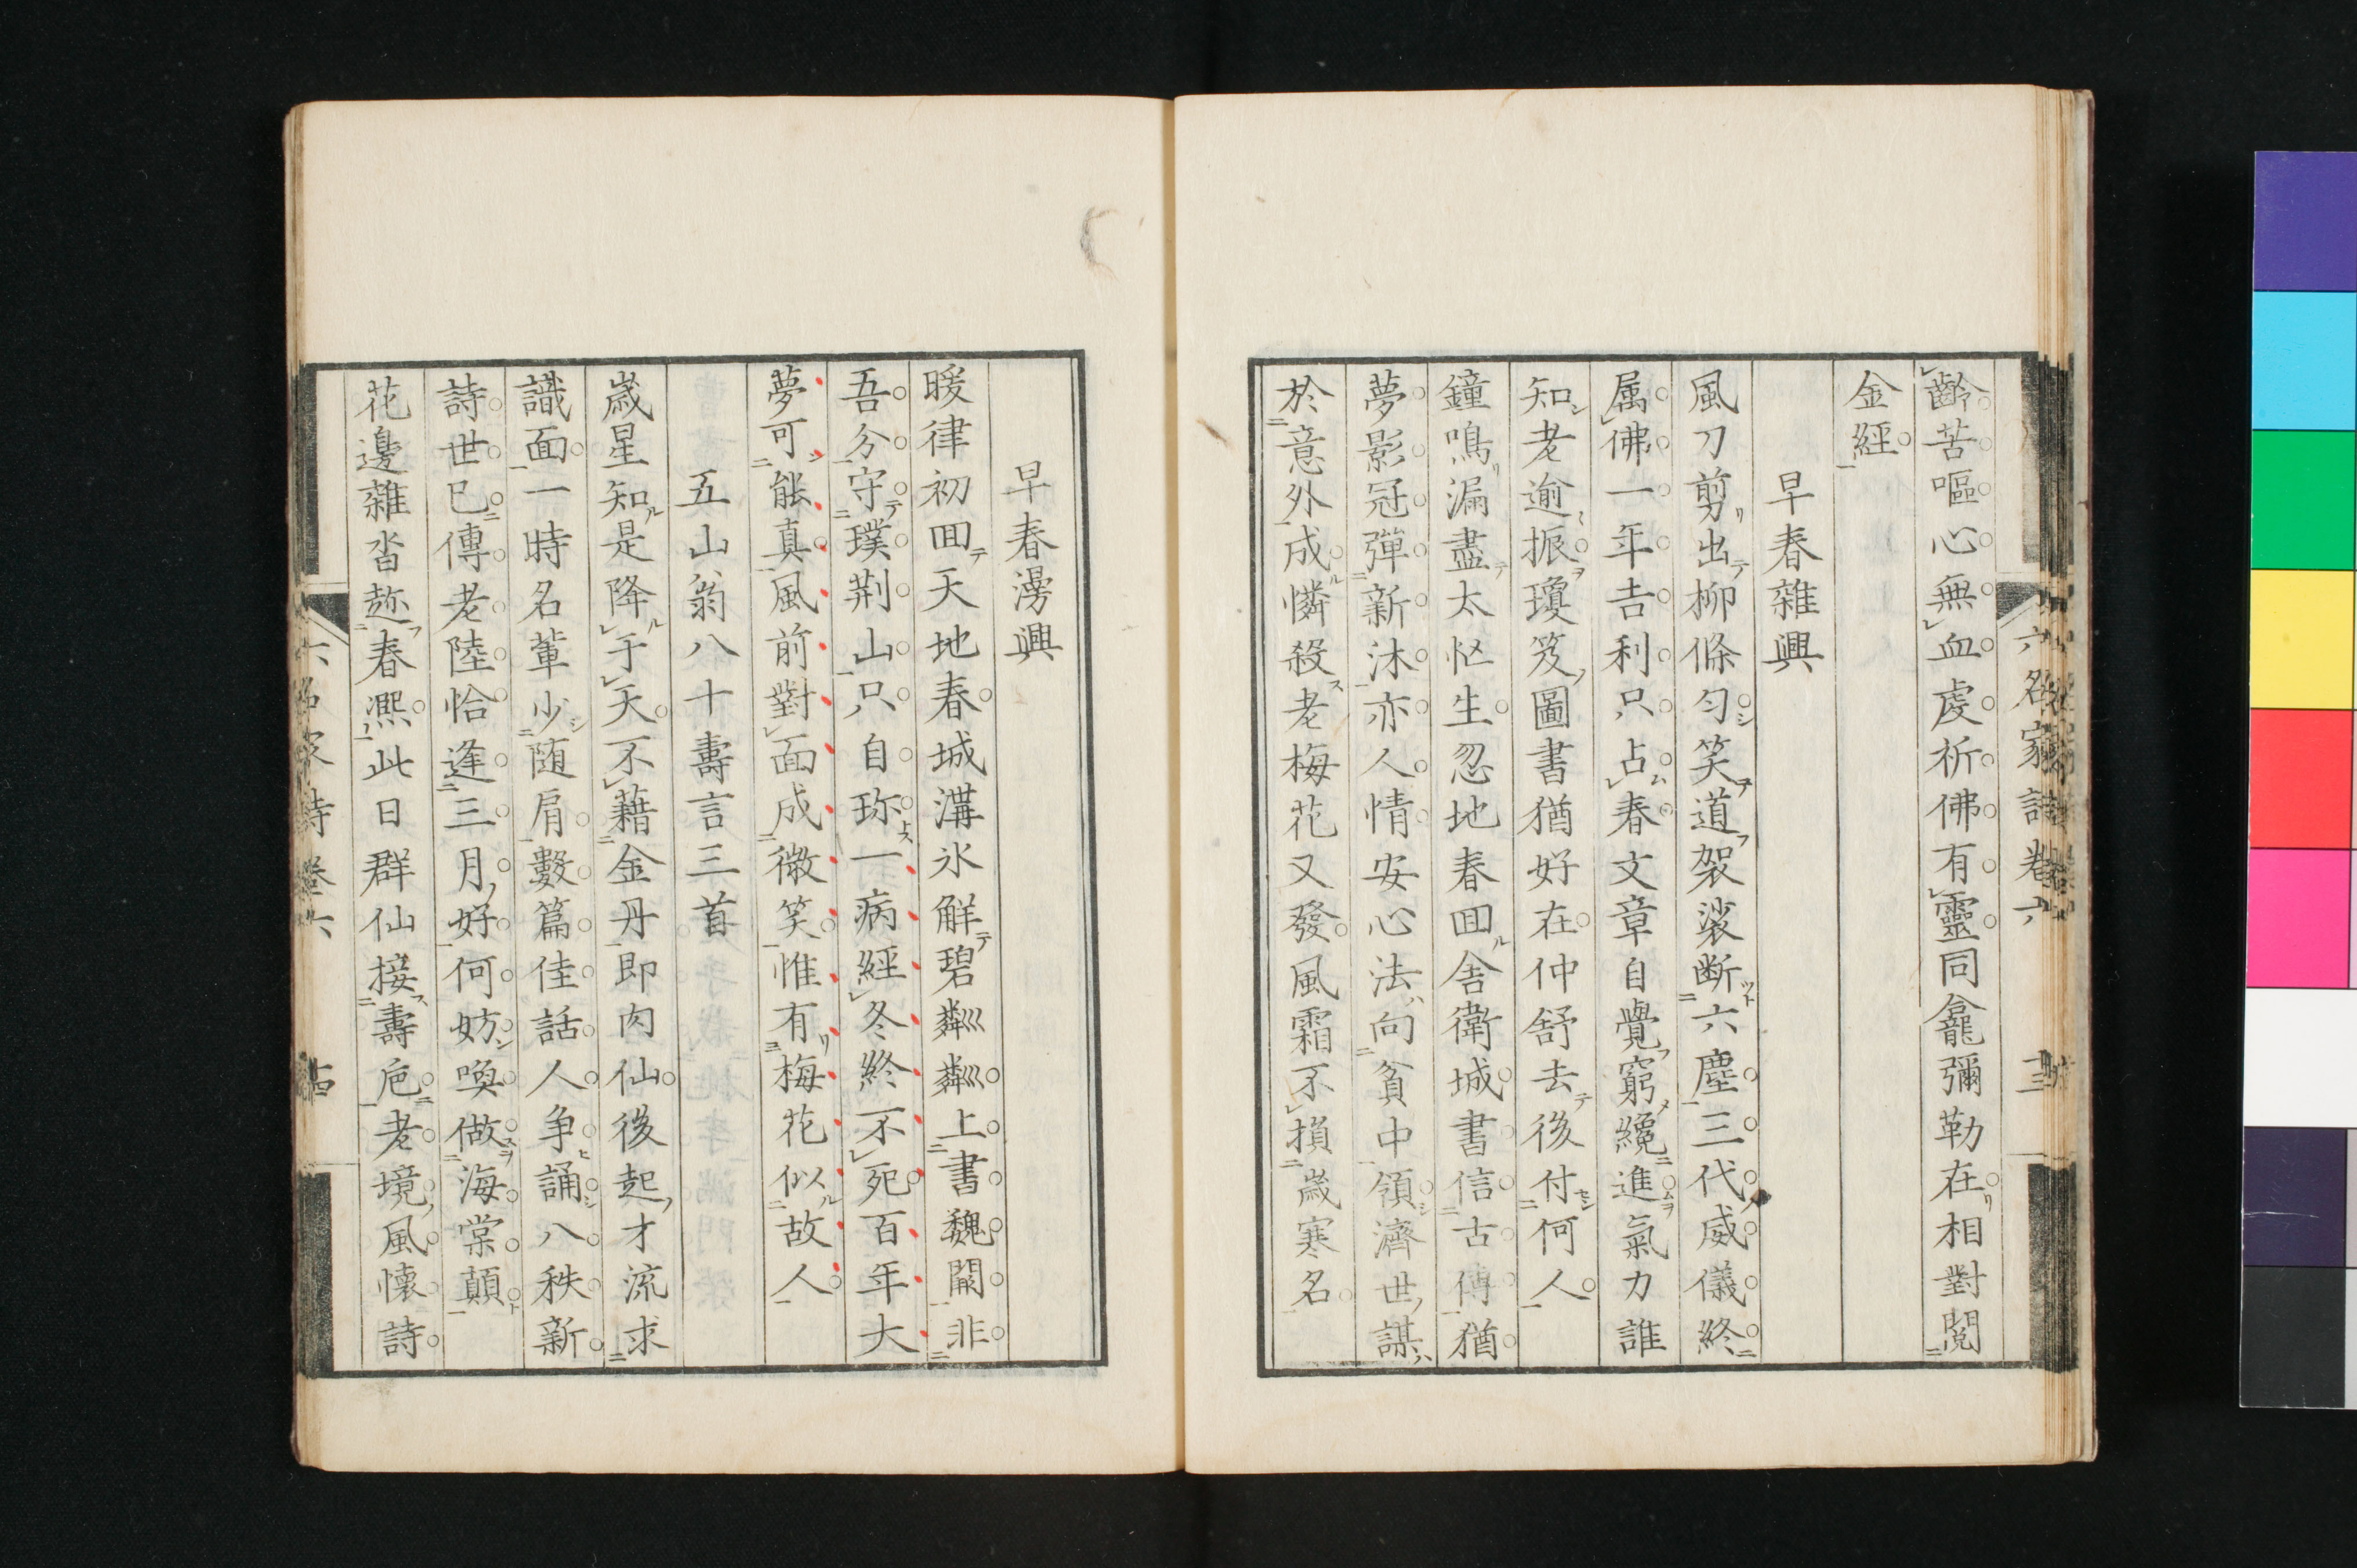 齡苦嘔心無血處祈佛有靈同龕彌勒在相對閲
金經
早春雜興
風刀剪出柳條匀笑道袈裟断六塵三代威儀終
属佛一年吉利只占春文章自覺窮纔進氣力誰
知老逾振瓊笈圖書猶好在仲舒去後付何人
鐘鳴漏盡太忙生忽地春回舎衛城書信古傳猶
夢影冠彈新沐亦人情安心法向貧中領濟世謀
於意外成憐殺老梅花又發風霜不損歳寒名
早春漫興
暖律初回天地春城溝氷解碧粼粼上書魏闕非
吾分守璞荆山只自珎一病經冬終不死百年大
夢可能真風前對面成微笑惟有梅花似故人
五山翁八十壽言三首
歳星知是降于天不藉金丹即肉仙後起才流求
識面一時名輩少随肩數篇佳話人争誦八秩新
詩世已傳老陸恰逢三月好何妨喚做海棠顛
花邊雜沓趂春熈此日群仙接壽巵老境風懐詩
六名家詩卷六